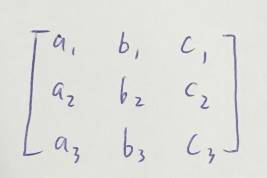 a₁ b₁ c₁
a₂ b₂ c₂
a₃ b₃ c₃